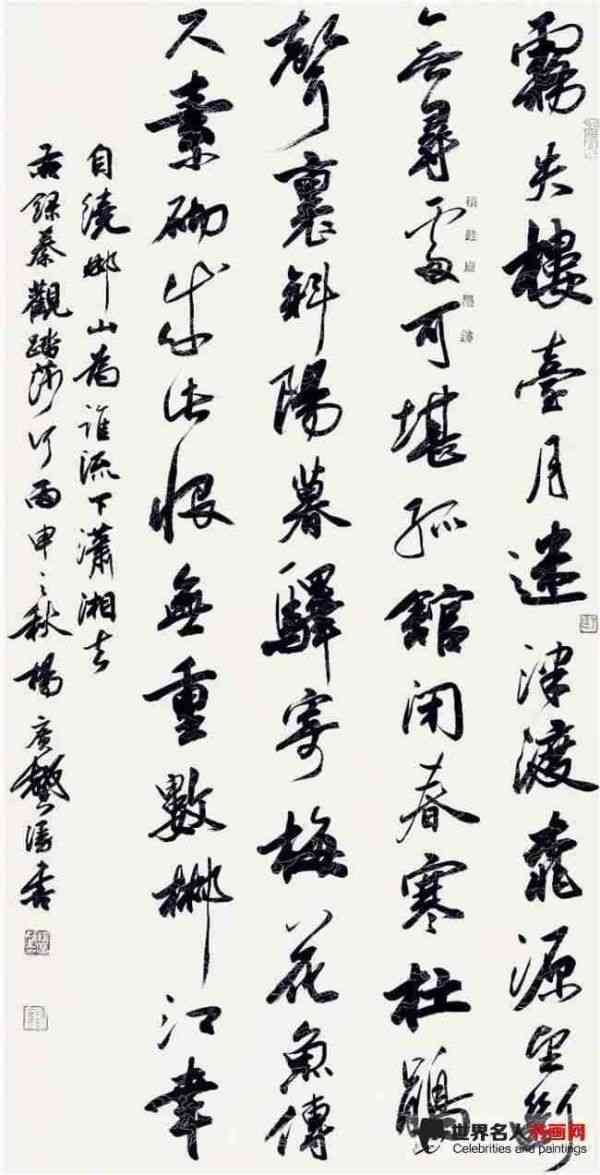 霧失樓臺月迷津渡桃源望斷
無尋處可堪孤館閉春寒杜鵑
聲裏斜陽暮驛寄梅花魚傳
尺素砌成此恨無重數郴江幸
自繞郴山為誰流下瀟湘去
右錄秦觀踏莎行丙申之秋楊廣馨書
世界名人书画网
Celebrities and paintings